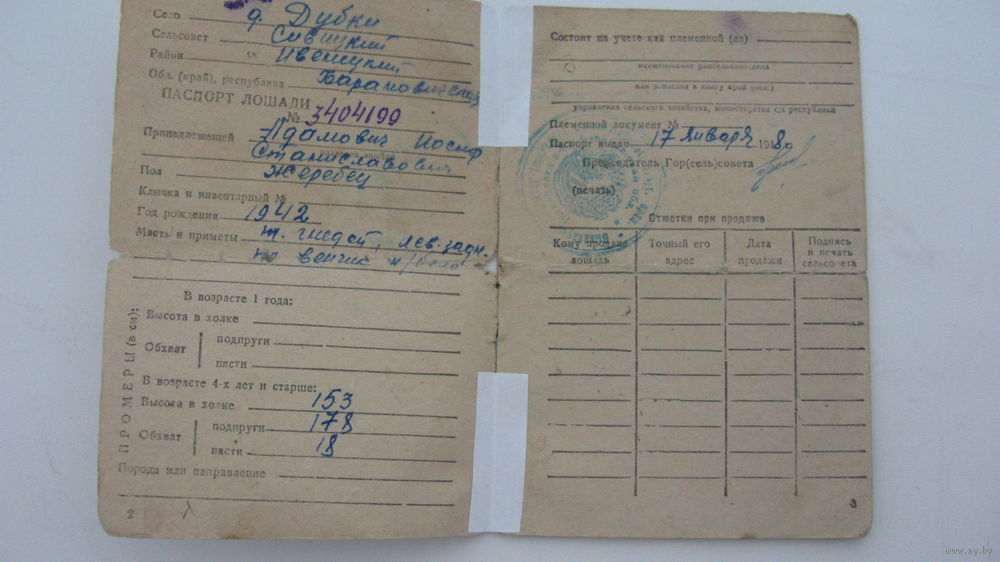 Село д. Дубки
Сельсовет Сивицкий
Район Ивенецкий
Обл. (край), республика Барановичская
ПАСПОРТ ЛОШАДИ
№ 3404199
Принадлежащей Адамович Иосиф
Станиславович
Пол Жеребец
Кличка и инвентарный №
Год рождения 1942
Масть и приметы т. гнедой, лев. задн.
венчик
В возрасте 1 года:
Высота в холке
Обхват
подпруги
пясти
ПРОМЕРЫ (в см):
В возрасте 4-х лет и старше:
Высота в холке 153
Обхват
подпруги 178
пясти 18
Порода или направление
2
Состоит на учете как племенной (ая)
или записана в книгу край (обл.)
управления сельского хозяйства, министерства с/х республики
Племенной документ №
Паспорт выдан 17 января 1948
Председатель Гор(сель)совета
(печать)
Отметки при продаже
Кому продана лошадь
Точный его адрес
Дата продажи
Подпись и печать сельсовета
3
www.ay.by